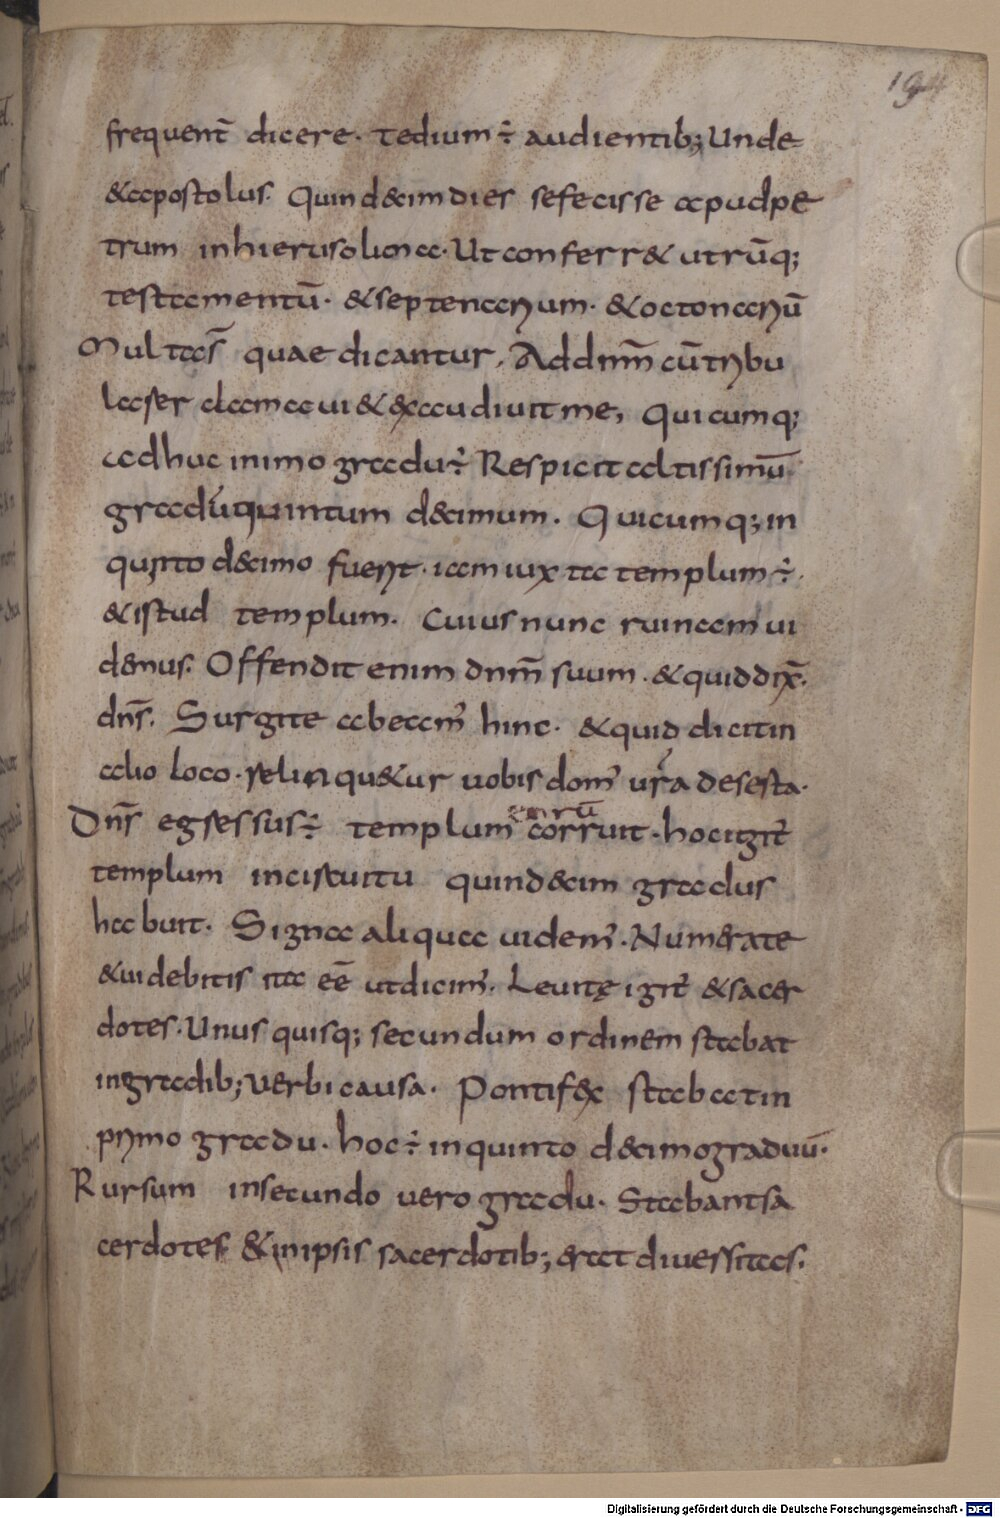 194
frequent̄ dicere. tedium ÷ audientib; Unde
&apostolus. Quind&cim dies sefecisse apud pe
trum inhierusolima. Ut conferr& utrūq;
testamentū. &septenarium. & octonariū
Multas̄ quae dicantur, Ad dn̄m cū tribu
larer clamaui & exaudiuit me, Quicumq;
adhuc inimo gradu ÷ Respicit altissimū
gradū quintum d&cimum. Quicumq; in
quinto d&cimo fuerit. iam iuxta templum ÷.
& istud templum. Cuius nunc ruinam ui
demus. Offendit enim dnm̄ suum. & quid dix̄.
dn̄s. Surgite abeam' hinc. & quid dicit in
alio loco. relinqu&ur uobis dom' ur̄a deserta.
Dn̄s egressus ÷ templum corruit. hoc igit̄
templum in circuitu quind&cim gradus
habuit. Signa aliqua uidem'. Numerate
&uidebitis ita eē ut dicim'. Leuitę igit̄ & sacer
dotes. Unus quisq; secundum ordinem stabat
in gradib; Verbi causa. Pontifex stabat in
primo gradu. hoc ÷ in quinto d&cimo graduū.
Rursum in secundo uero gradu. Stabant sa
cerdotes & in ipsis sacerdotib; erat diuersitas.
Digitalisierung gefördert durch die Deutsche Forschungsgemeinschaft - DFG